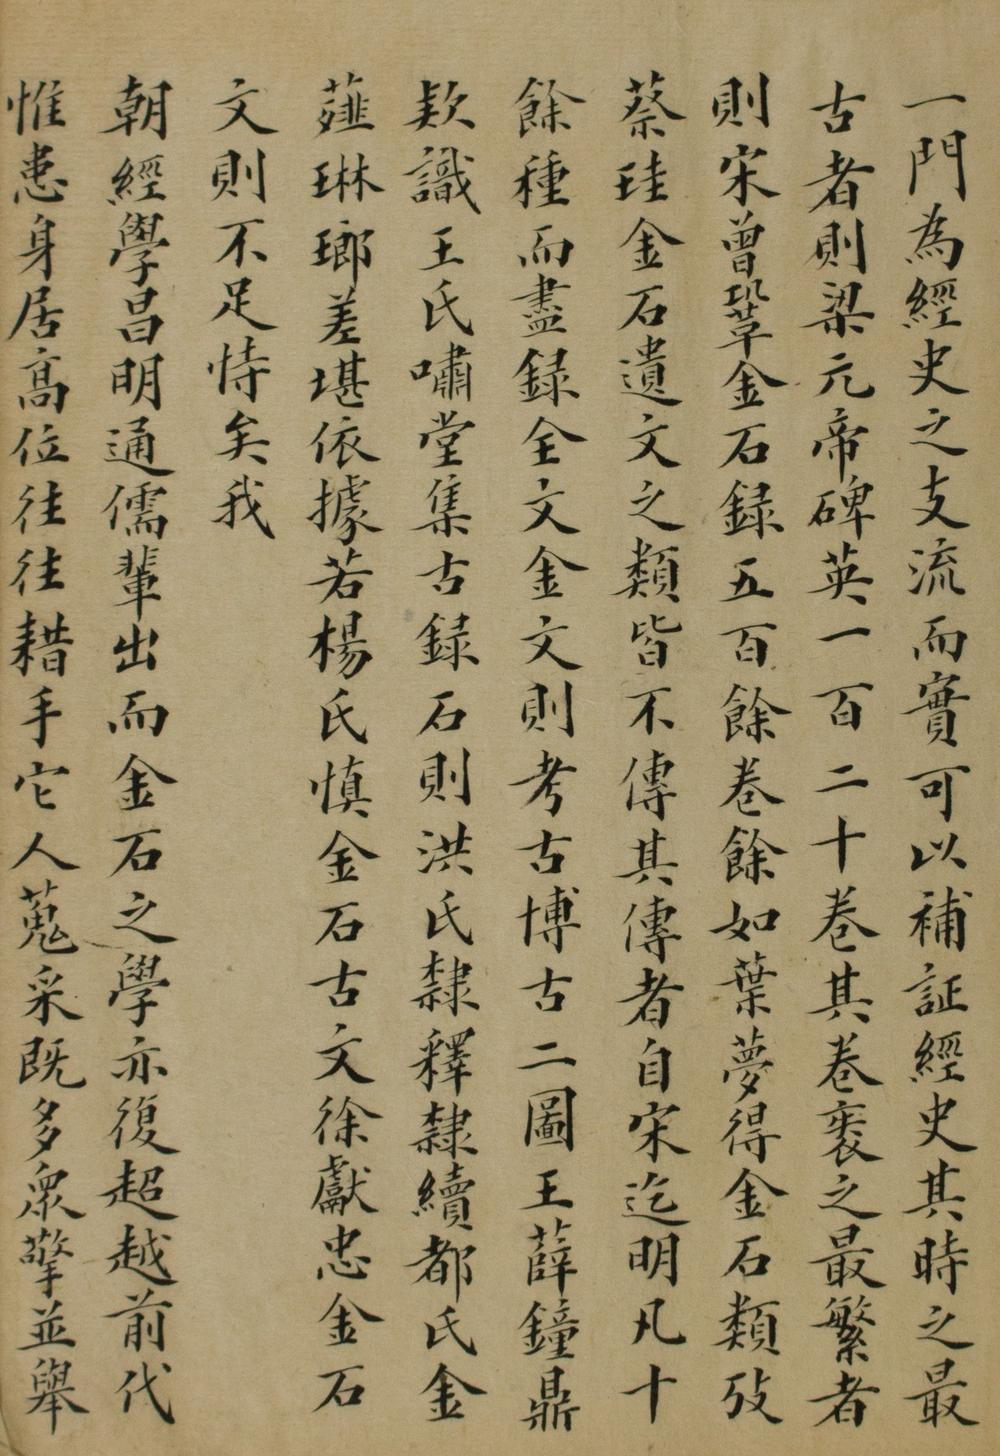 一門為經史之支流而實可以補証經史其時之最
古者則梁元帝碑英一百二十卷其卷袠之最繁者
則宋曾鞏金石録五百餘卷餘如葉夢得金石類攷
蔡珪金石遺文之類皆不傳其傳者自宋迄明凡十
餘種而盡録全文金文則考古博古二圖王薛鐘鼎
欵識王氏嘯堂集古録石則洪氏隸釋隸續都氏金
薤琳瑯差堪依據若楊氏慎金石古文徐獻忠金石
文則不足恃矣我
朝經學昌明通儒輩出而金石之學亦復超越前代
惟患身居高位往往耤手它人蒐采既多衆擎並舉